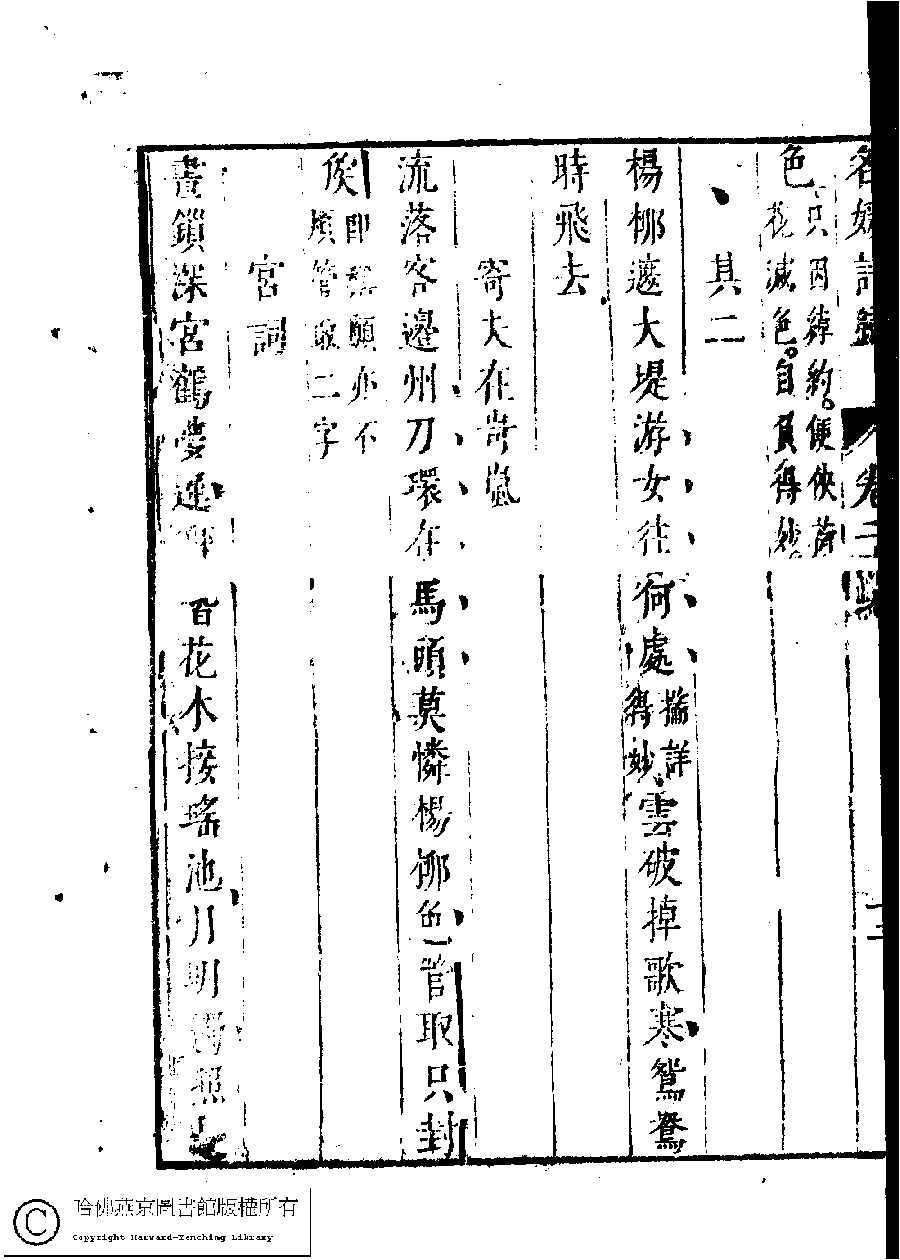 名媛詩歸　卷二
色只因綽約便俠荷
花減色自負得妙
其二
楊柳邊大堤游女往何處揣詳得妙雲破掉歌寒鴛鴦
時飛去
寄大在岢嵐
流落客邊州刀環在馬頭莫憐楊柳色管取只封
侯即無願亦不須管取二字
宮詞
晝鎖深宮鶴夢遲百花木接瑤池月明照
哈佛燕京圖書館版權所有
Copyright Harvard-Yenching Library